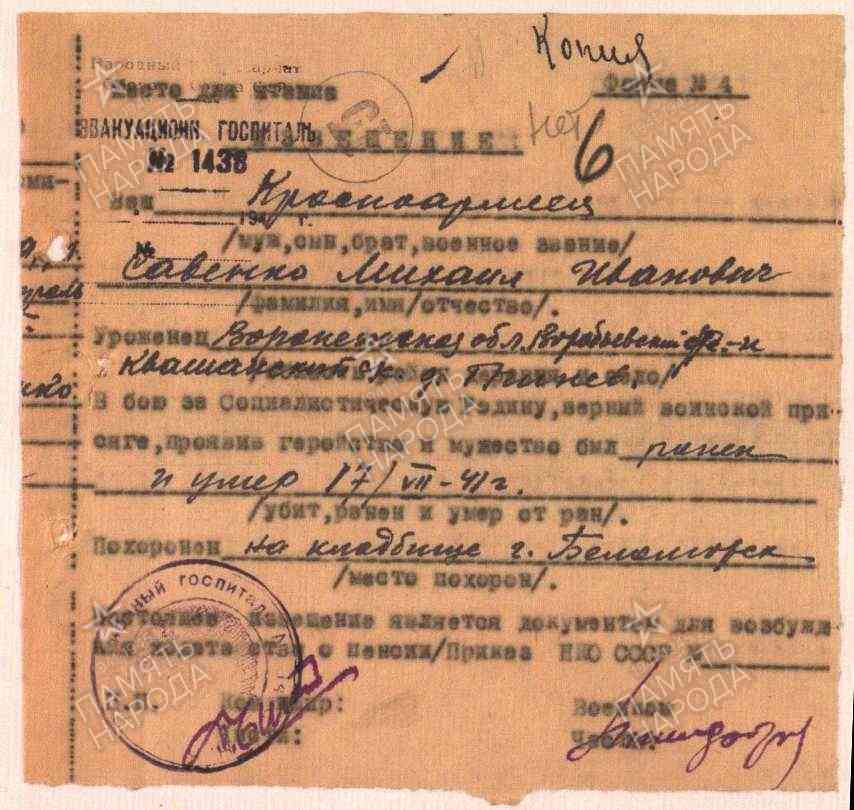 Копия
Народный
Место для штампа
Форма № 4
ЭВАКУАЦИОНН. ГОСПИТАЛЬ
ИЗВЕЩЕНИЕ
Нет
6
№ 1438
Ваш Красноармеец
194 г.
/муж,сын,брат,военное звание/
№
Савенко Михаил Иванович
/фамилия,имя/отчество/.
Уроженец Воронежской обл. Воробьевский р-н
Квашинский
В бою за Социалистическую Родину,верный воинской при
сяге,проявив геройство и мужество был ранен
и умер 17/VII-41г.
/убит,ранен и умер от ран/.
Похоронен на кладбище г. Беломорск
/место похорон/.
Настоящее извещение является документом для возбужд
ния ходатайства о пенсии/Приказ НКО СССР №
М.П. Командир:
Части:
Военком
Части:
ПАМЯТЬ НАРОДА
ПАМЯТЬ НАРОДА
ПАМЯТЬ НАРОДА
ПАМЯТЬ НАРОДА
ПАМЯТЬ НАРОДА